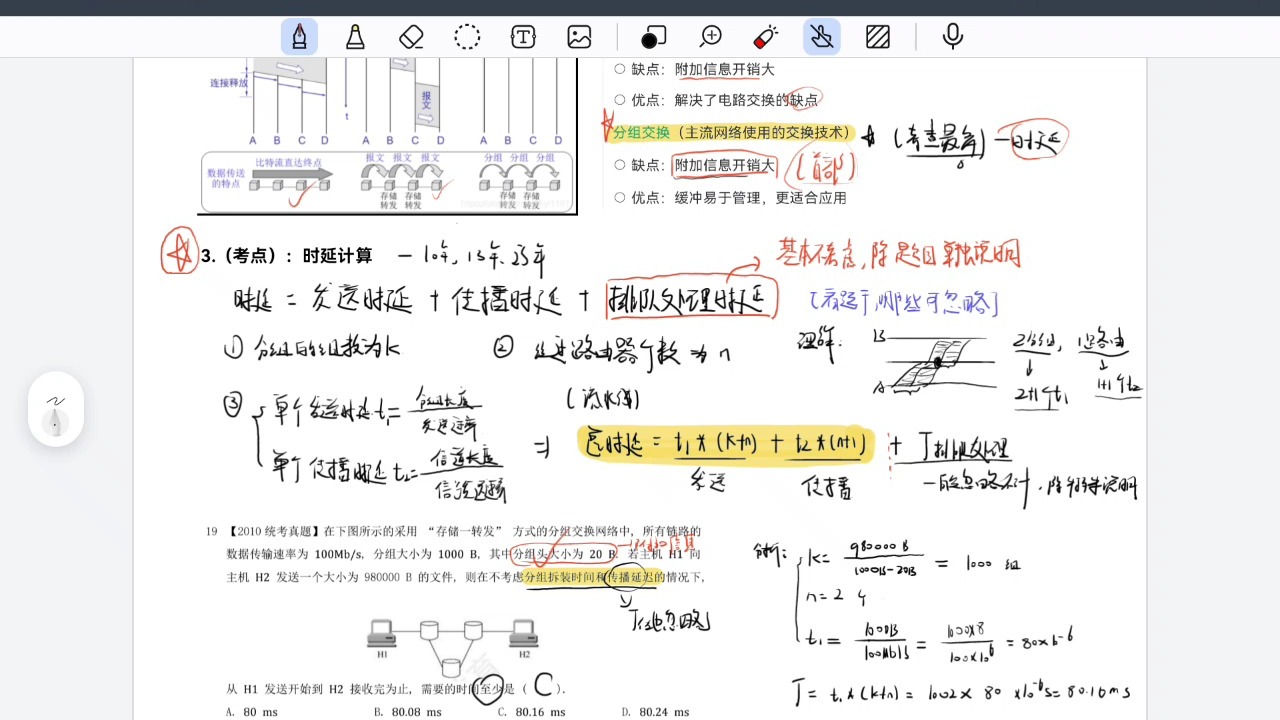 连接释放
t
报文
A B C D A B C D A B C D
比特流直达终点 报文 报文 报文 分组 分组 分组
数据传送的特点
存储转发 存储转发 存储转发 存储转发
缺点：附加信息开销大
优点：解决了电路交换的缺点
分组交换（主流网络使用的交换技术） (考查最多) — 时延
缺点：附加信息开销大 (首部)
优点：缓冲易于管理，更适合应用
3.（考点）：时延计算 — 10年, 13年, 23年
基本不考虑, 除题目单独说明
时延 = 发送时延 + 传播时延 + 排队处理时延
[看题干,哪些可忽略]
① 分组的组数为k ② 经过路由器个数为n
理解: B A 2分组, 1路由
2+1个t₁ 1+1个t₂
③ 单个发送时延 t₁ = 分组长度/发送速率
(流水线)
单个传播时延 t₂ = 信道长度/信号速率
⇒ 总时延 = t₁*(k+n) + t₂*(n+1) + T排队处理
发送 传播 一般忽略不计, 除特殊说明
19 【2010 统考真题】在下图所示的采用 “存储一转发” 方式的分组交换网络中，所有链路的
数据传输速率为 100Mb/s，分组大小为 1000 B，其中分组头大小为 20 B。若主机 H1 向
主机 H2 发送一个大小为 980000 B 的文件，则在不考虑分组拆装时间和传播延迟的情况下，
T传忽略
H1 H2
从 H1 发送开始到 H2 接收完为止，需要的时间至少是（ C ）.
A. 80 ms B. 80.08 ms C. 80.16 ms D. 80.24 ms
分析: k = 980000B/1000B-20B = 1000 组
n = 2 个
t₁ = 1000B/100Mb/s = 1000×8/100×10⁶ = 80×10⁻⁶
T = t₁*(k+n) = 1002 × 80 ×10⁻⁶s = 80.16ms